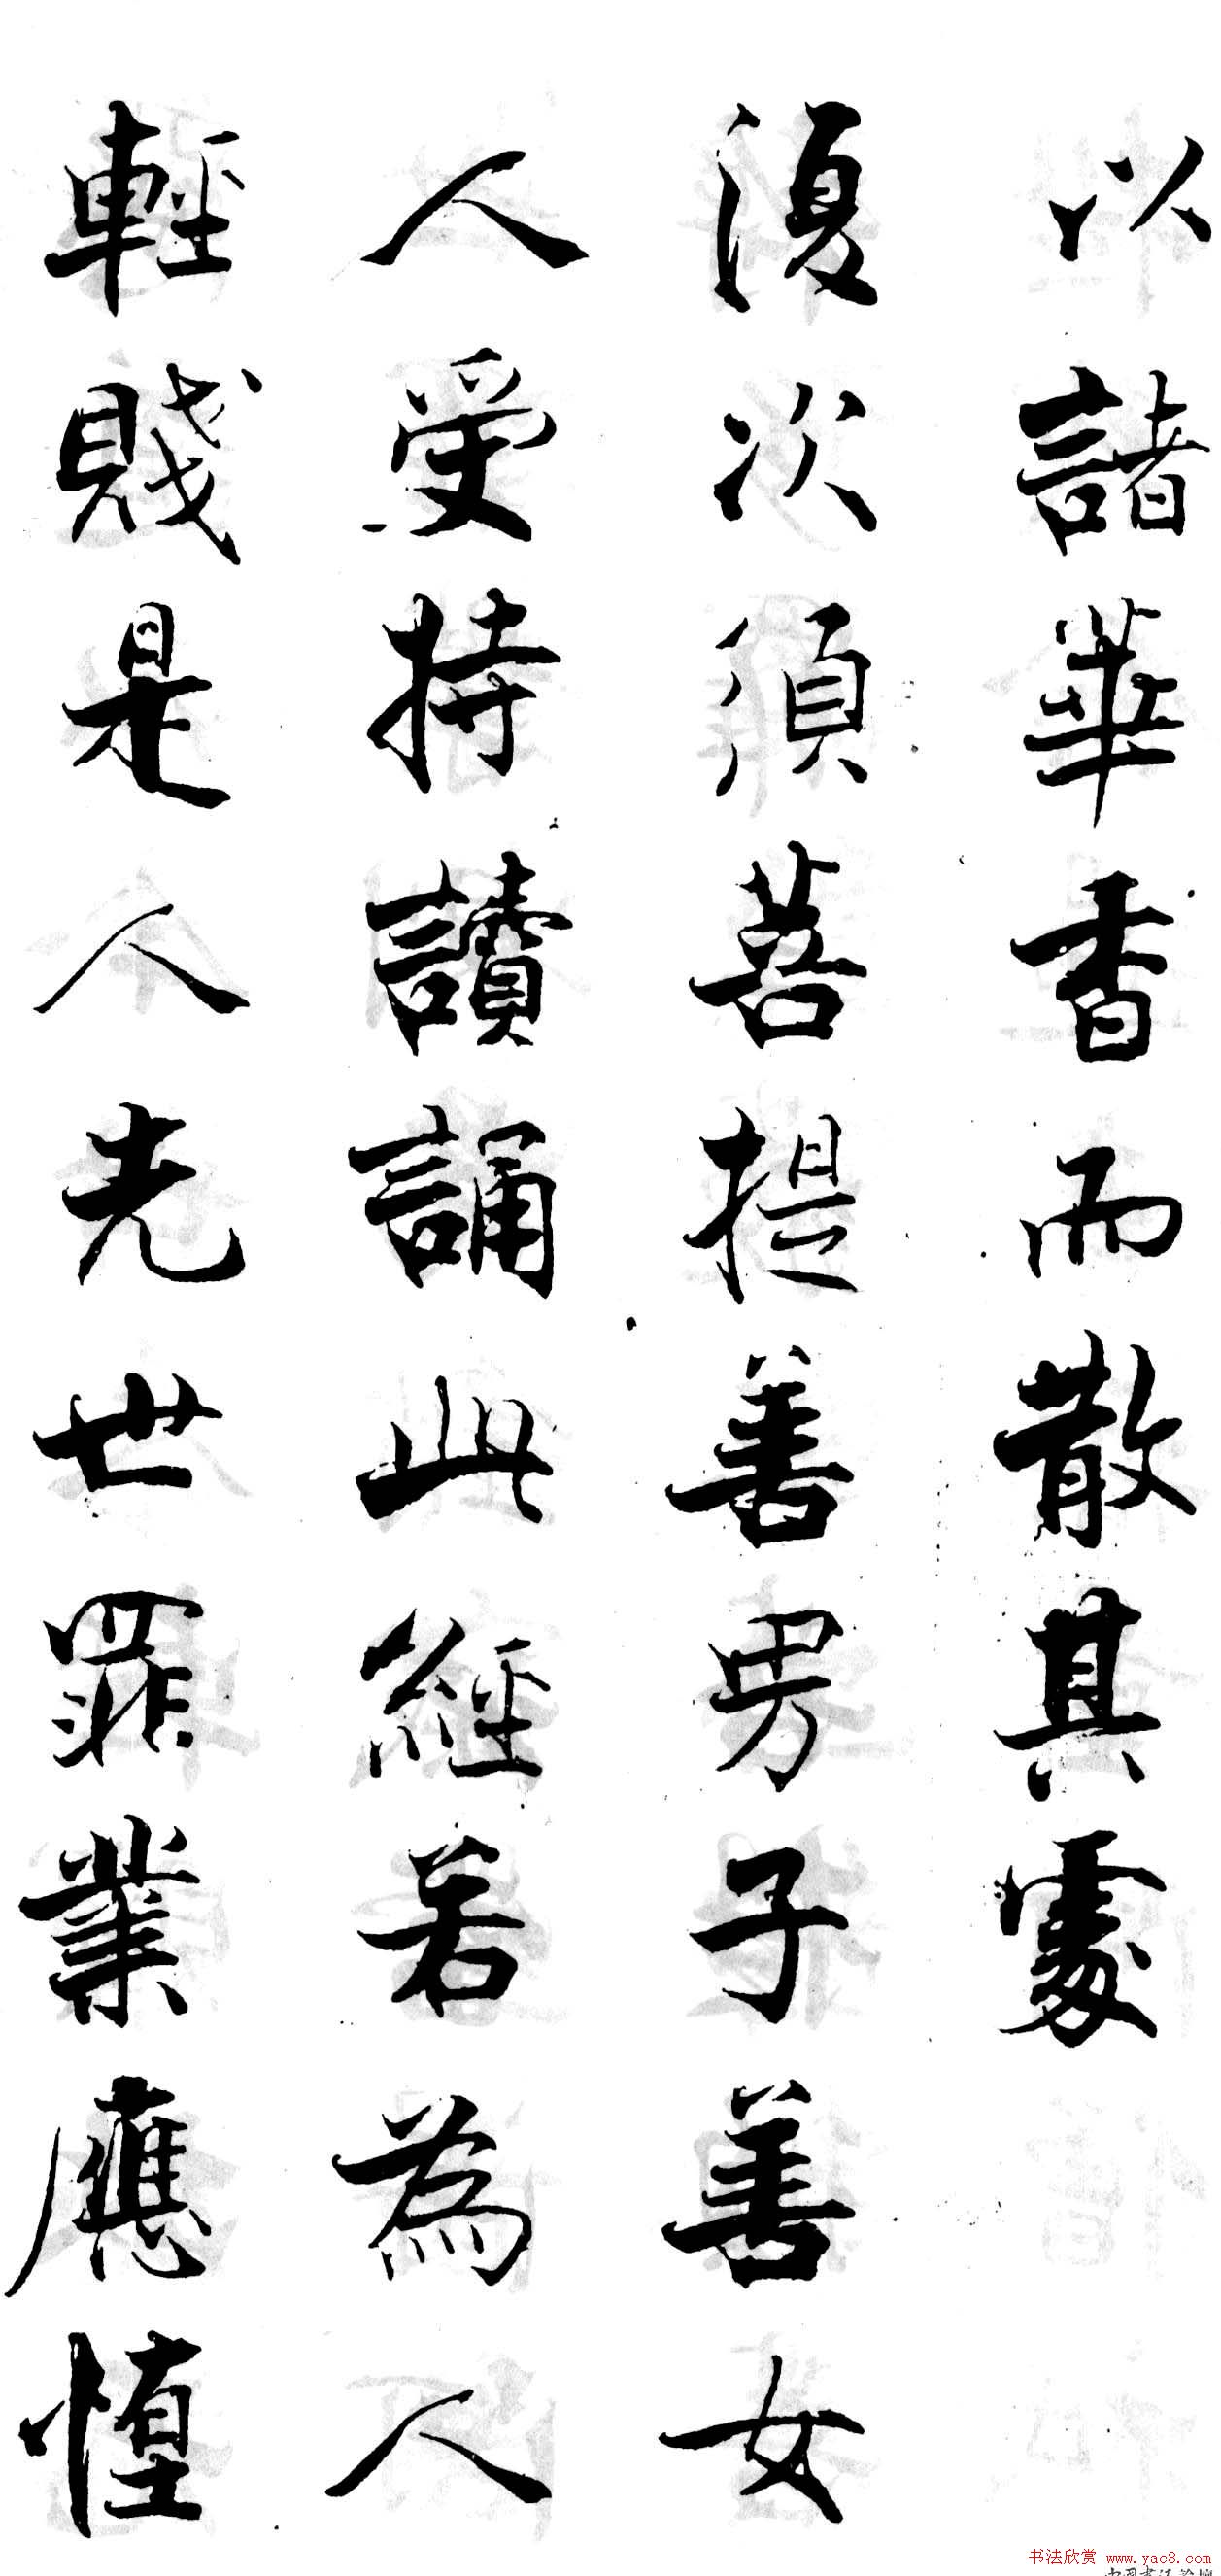 以諸華香而散其處
復次須菩提善男子善女
人受持讀誦此經若為人
輕賤是人先世罪業應墮
书法欣赏 www.yac8.com